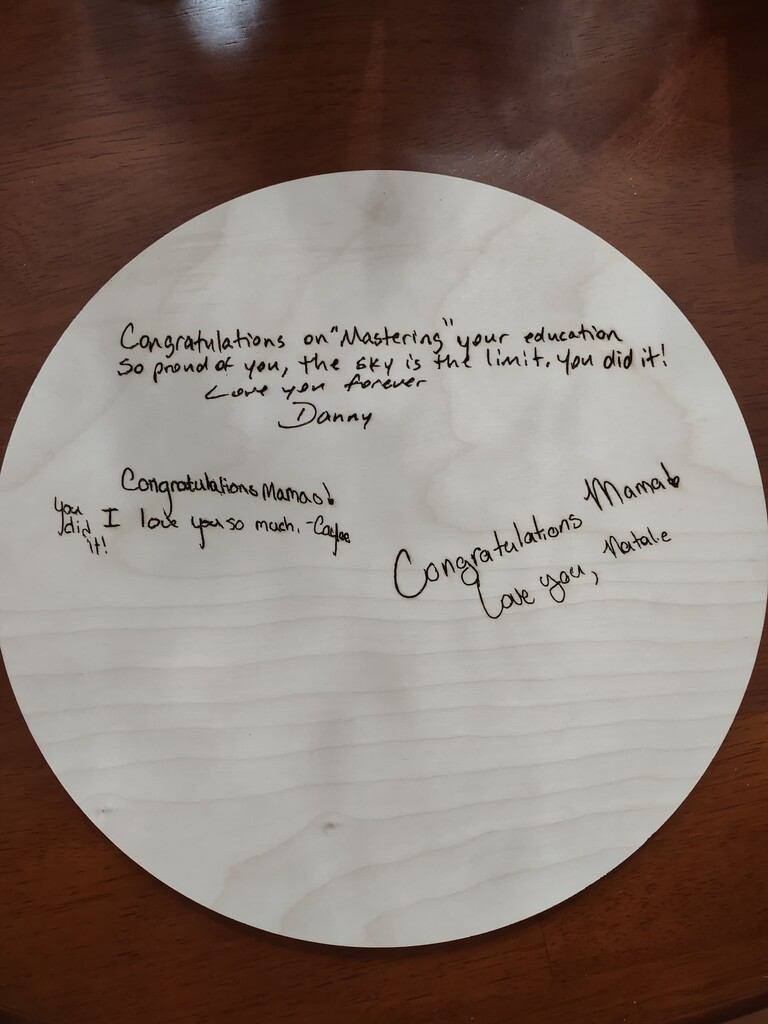 Congratulations on "Mastering" your education
So proud of you, the sky is the limit. You did it!
Love you forever
Danny
Congratulations Mamao!
I love you so much. -Caylee
You
did
it!
Congratulations Mama!
Love you, Natalie